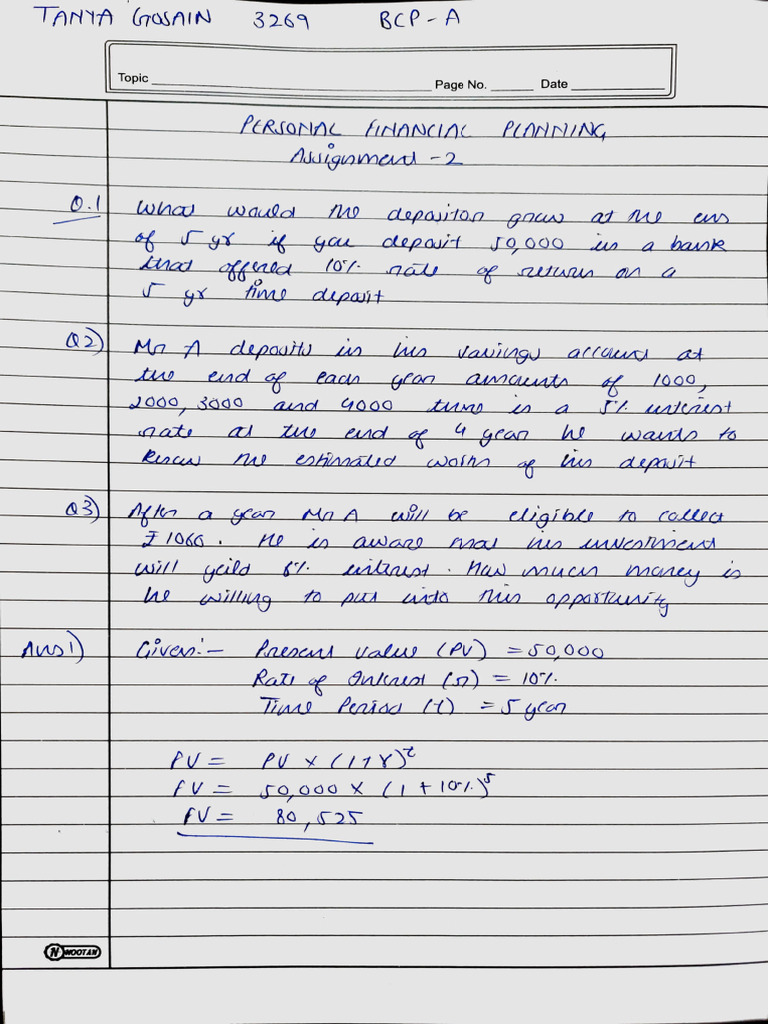 TANYA GOSAIN 3269 BCP-A
Topic Page No. Date
PERSONAL FINANCIAL PLANNING
Assignment -2
Q.1 What would the depositor grow at the end
of 5 yr if you deposit 50,000 in a bank
that offered 10% rate of return on a
5 yr time deposit
Q2) Mr A deposits in his savings account at
the end of each year amounts of 1000,
2000, 3000 and 4000 there is a 5% interest
rate at the end of 4 year he wants to
the estimated worth of his deposit
Q3) After a year Mr A will be eligible to collect
₹1060. He is aware that his investment
will yeild 6% interest. How much money is
he willing to put into this opportunity
Ans1) Given:- Present Value (PV) = 50,000
Rate of Interest (r) = 10%.
Time Period (t) = 5 year
PV = PV × (1+r)^t
FV = 50,000 × (1 + 10%)^5
FV = 80,525
N NOOTAN